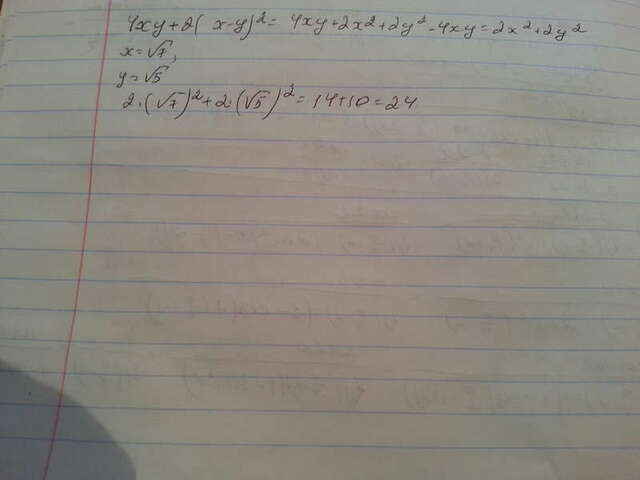 4xy+2(x-y)²= 4xy+2x²+2y²-4xy=2x²+2y²
x=√7,
y=√5
2·(√7)²+2·(√5)²=14+10=24